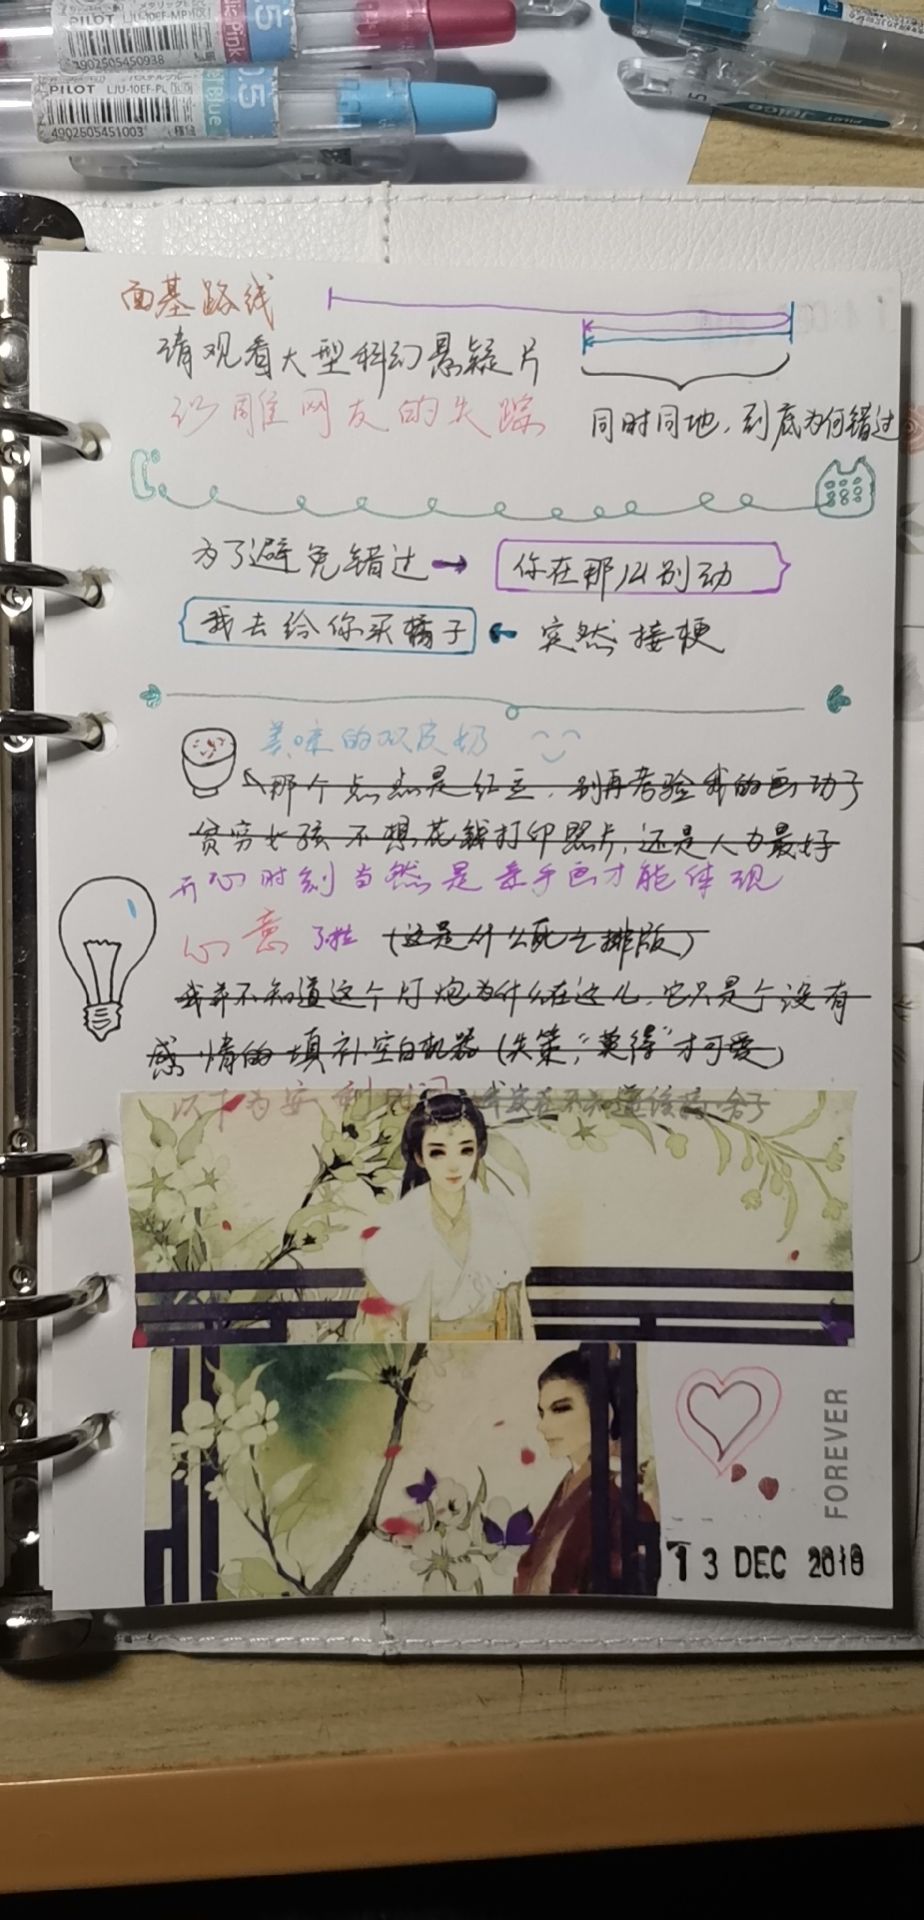 PILOT LJU-10EF-MP
4902505450938
0.5
PILOT LJU-10EF-PL
4902505451003
0.5
Juice
面基路线
请观看大型科幻悬疑片
沙雕网友的失踪
同时同地,到底为何错过
为了避免错过 → 你在那儿别动
我去给你买橘子 ← 突然接梗
美味的双皮奶
那个点点是红豆,别再考验我的画功了
贫穷女孩不想花钱打印照片,还是人力最好
开心时刻当然是亲手画才能体现
心意了啦 (这是什么死亡排版)
我并不知道这个灯炮为什么在这儿,它只是个没有
感情的填补空白机器(失策,“莫得”才可爱)
以下为安利时间
FOREVER
13 DEC 2018